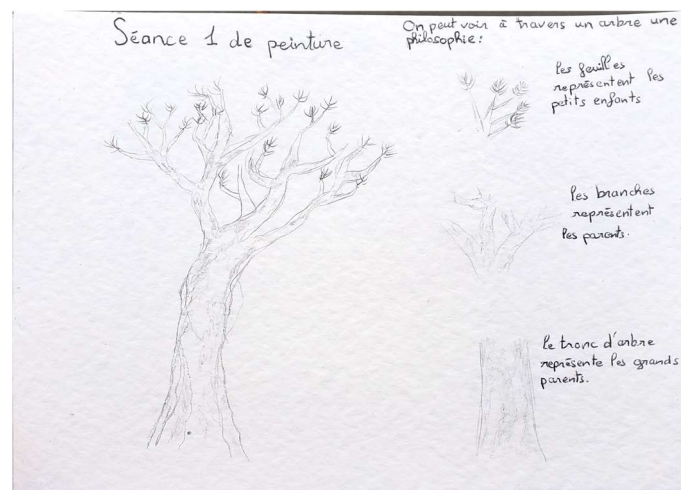 Séance 1 de peinture
On peut voir à travers un arbre une
philosophie :
les feuilles
représentent les
petits enfants
les branches
représentent
les parents.
le tronc d'arbre
représente les grands
parents.